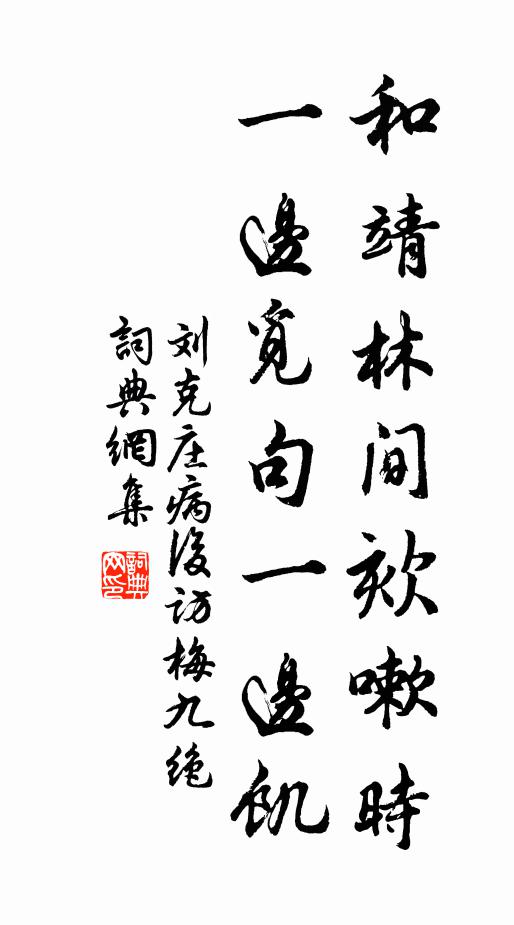 和靖林間欬嗽時
一邊覓句一邊飢
刘克庄病後访梅九绝
詞典網集
詞典网印